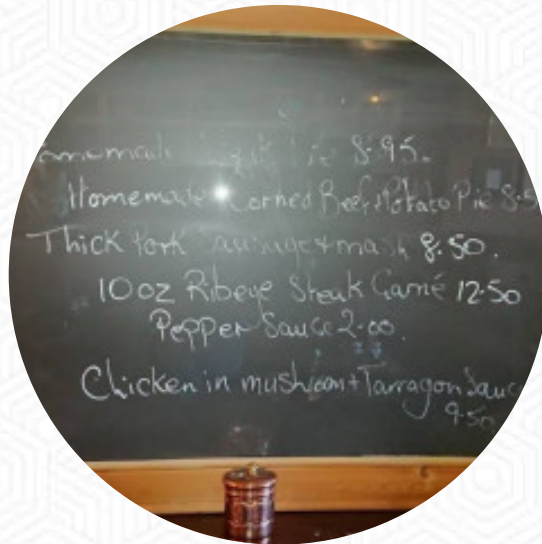 8.95.
Homemade Corned Beef+Potato Pie
Thick Pork Sausage+mash 8.50.
10oz Ribeye Steak Garné 12.50
Pepper Sauce 2.00.
Chicken in mushroom+Tarragon Sauc
9.50